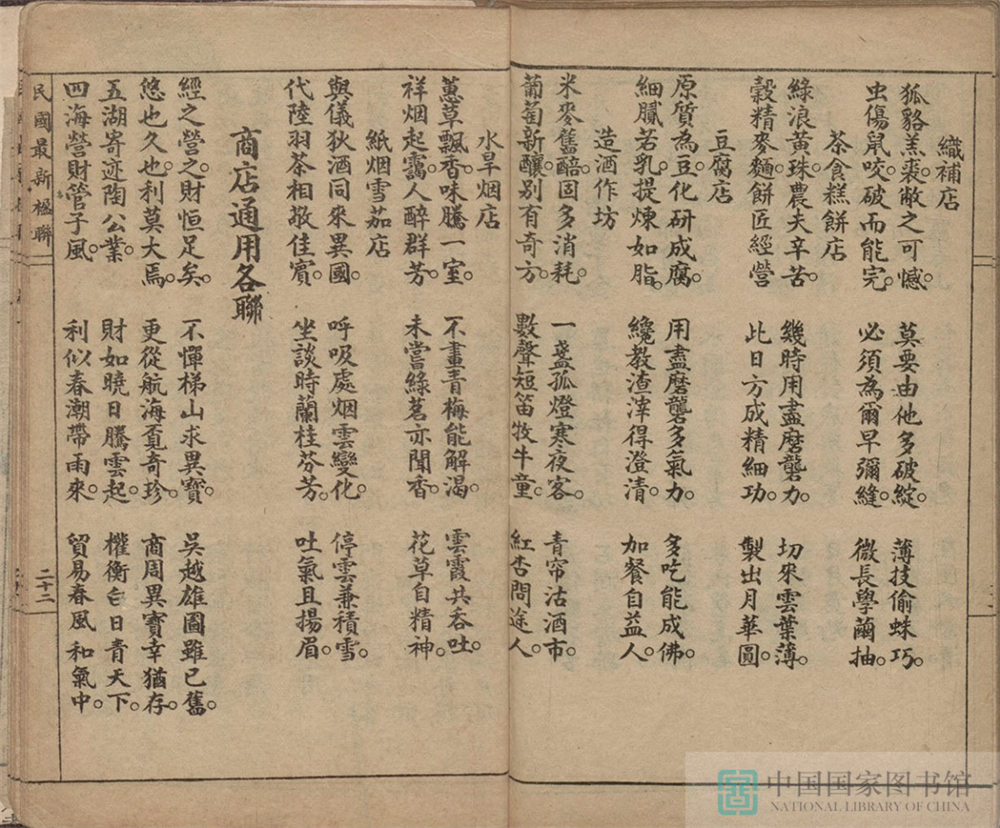 織補店
狐貉羔裘敝之可憾。 莫要由他多破綻。 薄技偷蛛巧。
虫傷鼠咬。破而能完。 必須為爾早彌縫。 微長學繭抽。
茶食糕餅店
綠浪黃珠。農夫辛苦。 幾時用盡磨礱力。 切來雲葉薄。
穀精麥麵。餅匠經營 此日方成精細功。 製出月華圓。
豆腐店
原質為豆。化研成腐。 用盡磨礱多氣力。 多吃能成佛。
細膩若乳。提煉如脂。 纔教渣滓得澄清。 加餐自益人。
造酒作坊
米麥舊醅固多消耗。 一盞孤燈寒夜客。 青帘沽酒市。
葡萄新釀。別有奇方。 數聲短笛牧牛童。 紅杏問途人。
水旱烟店
蕙草飄。香味騰一室。 不畫青梅能解渴。 雲霞共吞吐。
祥烟起。靄人醉群芳。 未嘗綠茗亦聞香。 花草自精神。
紙烟雪茄店
與儀狄酒同來異國。 呼吸處烟雲變化。 停雲兼積雪。
代陸羽茶相敬佳賓。 坐談時蘭桂芬芳。 吐氣且揚眉。
商店通用各聯
經之營。之財恒足矣。 不憚梯山求異寶。 吳越雄圖雖已舊。
悠也久。也利莫大焉。 更從航海覔奇珍。 商周異寶幸猶存。
五湖寄迹陶公業。 財如曉日騰雲起。 權衡白日青天下。
四海營財管子風。 利似春潮帶雨來。 貿易春風和氣中。
民國最新楹聯
二十二
中国国家图书馆
NATIONAL LIBRARY OF CHINA